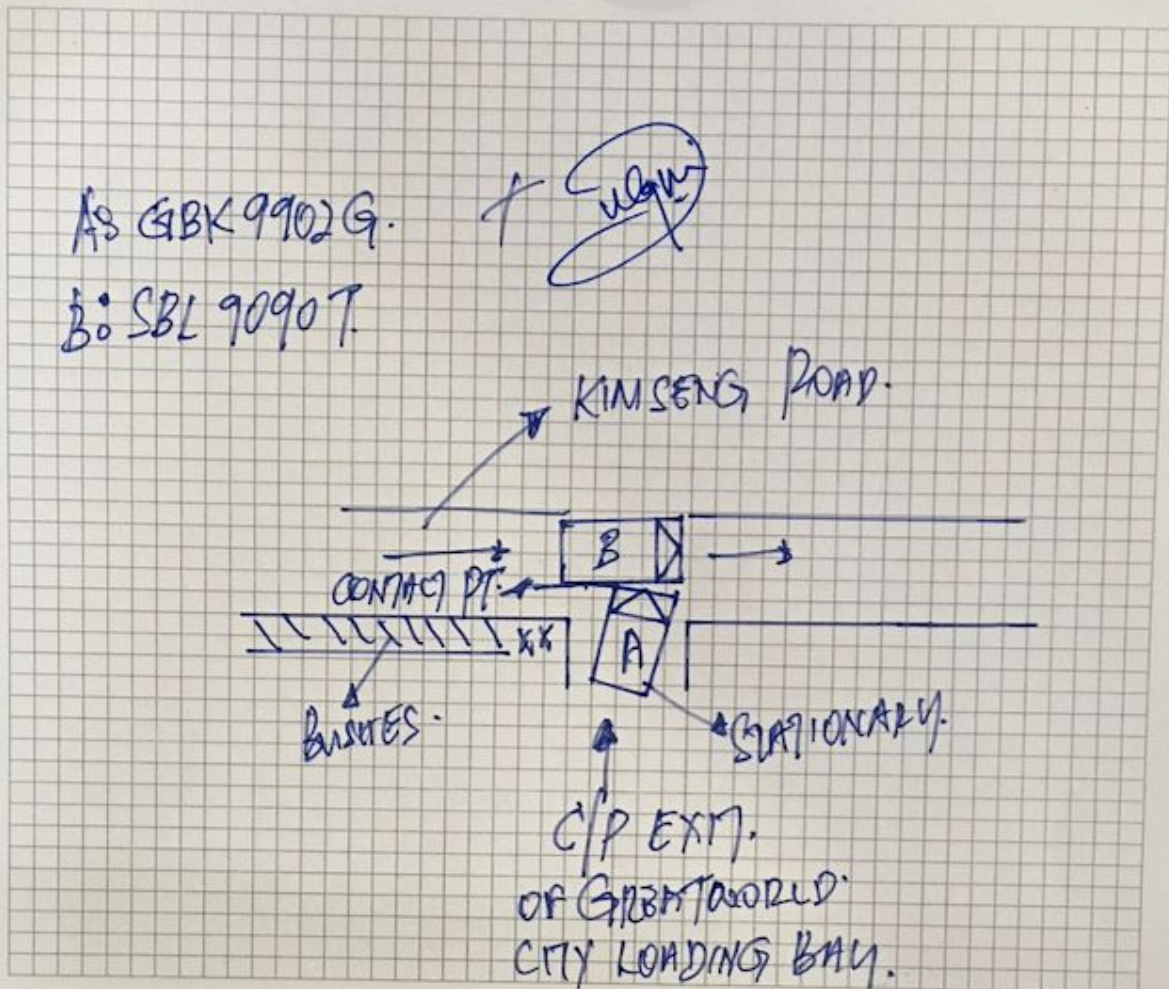 A: GBK 9902 G.
B: SBL 9090 T.
KIM SENG ROAD.
B
CONTACT PT.
A
BUSHES.
STATIONARY.
C/P EXIT.
OF GREAT WORLD
CITY LOADING BAY.